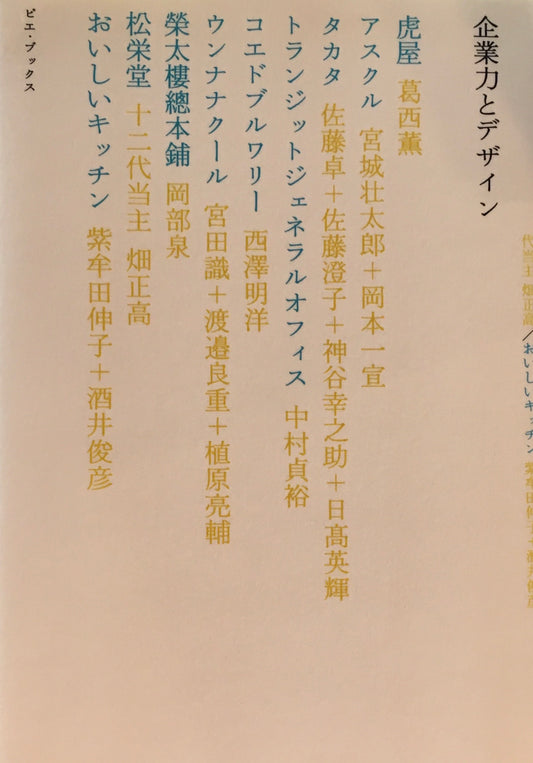 代当主 畑正高/おいしいキッチン 紫牟田伸子+酒井俊彦
企業力とデザイン
虎屋 葛西薫
アスクル 宮城壮太郎+岡本一宣
タカタ 佐藤卓+佐藤澄子+神谷幸之助+日髙英輝
トランジットジェネラルオフィス 中村貞裕
コエドブルワリー 西澤明洋
ウンナナクール 宮田識+渡邉良重+植原亮輔
榮太樓總本鋪 岡部泉
松栄堂 十二代当主 畑正高
おいしいキッチン 紫牟田伸子+酒井俊彦
ピエ・ブックス